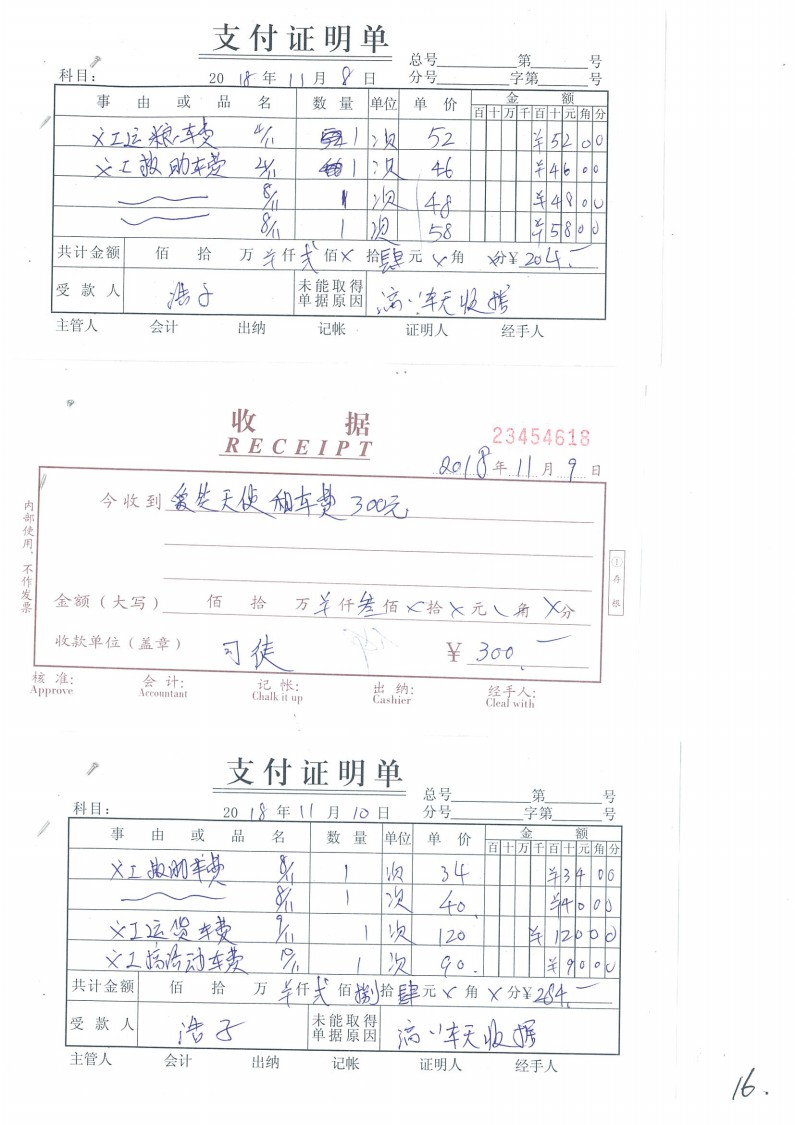 支付证明单
总号 第 号
科目: 2018年11月8日 分号 字第 号
事由或品名 数量 单位 单价 金额
百十万千百十元角分
义工运粮车费 4/11 1 次 52 ¥5200
义工救助车费 1 次 46 ¥4600
8/11 1 次 48 ¥4800
8/11 1 次 58 ¥5800
共计金额 佰 拾 万 仟 贰 佰 × 拾 肆 元 × 角 分 ¥204.-
受款人 浩子 未能取得单据原因 滴、车无收据
主管人 会计 出纳 记帐 证明人 经手人
收据
RECEIPT
23454618
2018年11月9日
今收到 爱笑天使 租车费 300元
金额(大写) 佰 拾 万 仟 叁 佰 × 拾 × 元 角 × 分
收款单位(盖章) 司徒 ¥ 300.-
内部使用、不作发票
①存根
核准: 会计: 记帐: 出纳: 经手人:
Approve Accountant Chalk it up Cashier Cleal with
支付证明单
总号 第 号
科目: 2018年11月10日 分号 字第 号
事由或品名 数量 单位 单价 金额
百十万千百十元角分
义工救助车费 8/11 1 次 34 ¥3400
8/11 1 次 40 ¥4000
义工运货车费 9/11 1 次 120 ¥12000
义工搞活动车费 10/11 1 次 90. ¥9000
共计金额 佰 拾 万 仟 贰 佰 捌 拾 肆 元 × 角 × 分 ¥284.-
受款人 浩子 未能取得单据原因 滴、车无收据
主管人 会计 出纳 记帐 证明人 经手人
16.